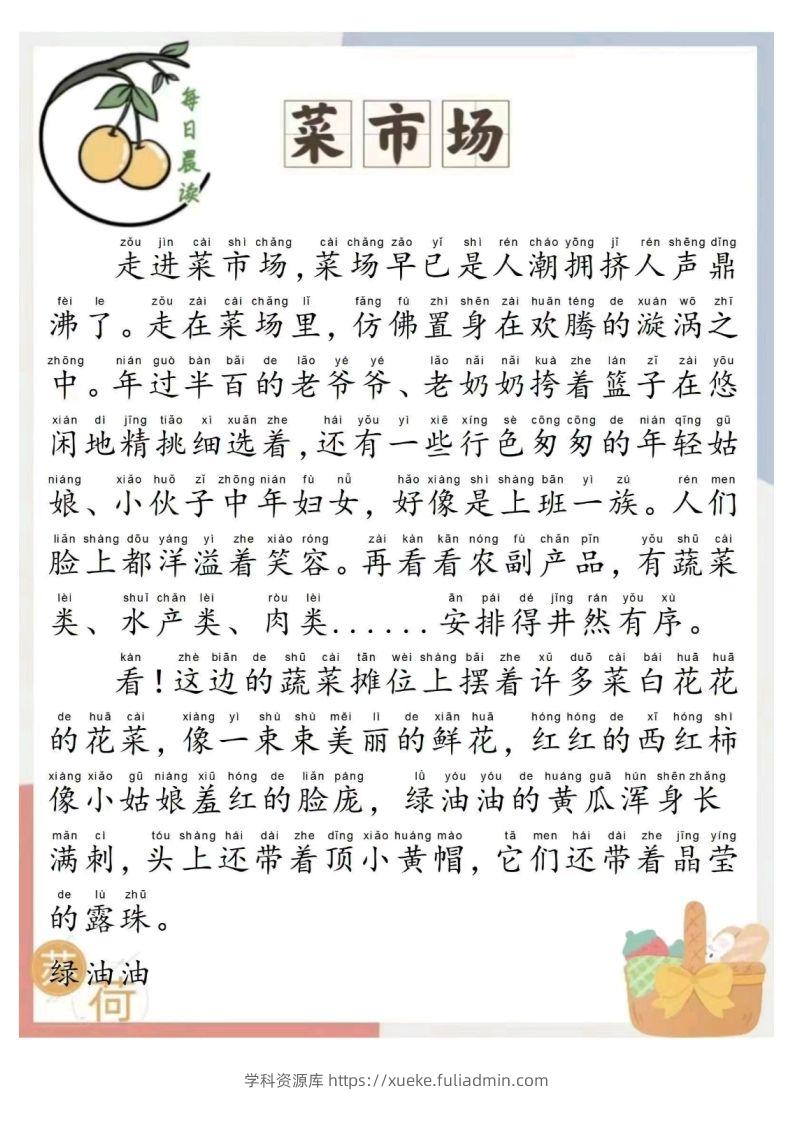 每日晨读
菜市场
zǒu jìn cài shì chǎng cài chǎng zǎo yǐ shì rén cháo yōng jǐ rén shēng dǐng
走进菜市场，菜场早已是人潮拥挤人声鼎
fèi le zǒu zài cài chǎng lǐ fǎng fú zhì shēn zài huān téng de xuán wō zhī
沸了。走在菜场里，仿佛置身在欢腾的漩涡之
zhōng nián guò bàn bǎi de lǎo yé yé lǎo nǎi nǎi kuà zhe lán zǐ zài yōu
中。年过半百的老爷爷、老奶奶挎着篮子在悠
xián dì jīng tiāo xì xuǎn zhe hái yǒu yì xiē xíng sè cōng cōng de nián qīng gū
闲地精挑细选着，还有一些行色匆匆的年轻姑
niáng xiǎo huǒ zǐ zhōng nián fù nǚ hǎo xiàng shì shàng bān yì zú rén men
娘、小伙子中年妇女，好像是上班一族。人们
liǎn shàng dōu yáng yì zhe xiào róng zài kàn kān nóng fù chǎn pǐn yǒu shū cài
脸上都洋溢着笑容。再看看农副产品，有蔬菜
lèi shuǐ chǎn lèi ròu lèi ān pái dé jǐng rán yǒu xù
类、水产类、肉类......安排得井然有序。
kàn zhè biān de shū cài tān wèi shàng bǎi zhe xǔ duō cài bái huā huā
看！这边的蔬菜摊位上摆着许多菜白花花
de huā cài xiàng yì shù shù měi lì de xiān huā hóng hóng de xī hóng shì
的花菜，像一束束美丽的鲜花，红红的西红柿
xiàng xiǎo gū niáng xiū hóng de liǎn páng lǜ yóu yóu de huáng guā hún shēn zhǎng
像小姑娘羞红的脸庞，绿油油的黄瓜浑身长
mǎn cì tóu shàng hái dài zhe dǐng xiǎo huáng mào tā men hái dài zhe jīng yíng
满刺，头上还带着顶小黄帽，它们还带着晶莹
de lù zhū
的露珠。
绿油油
荷
学科资源库 https://xueke.fuliadmin.com